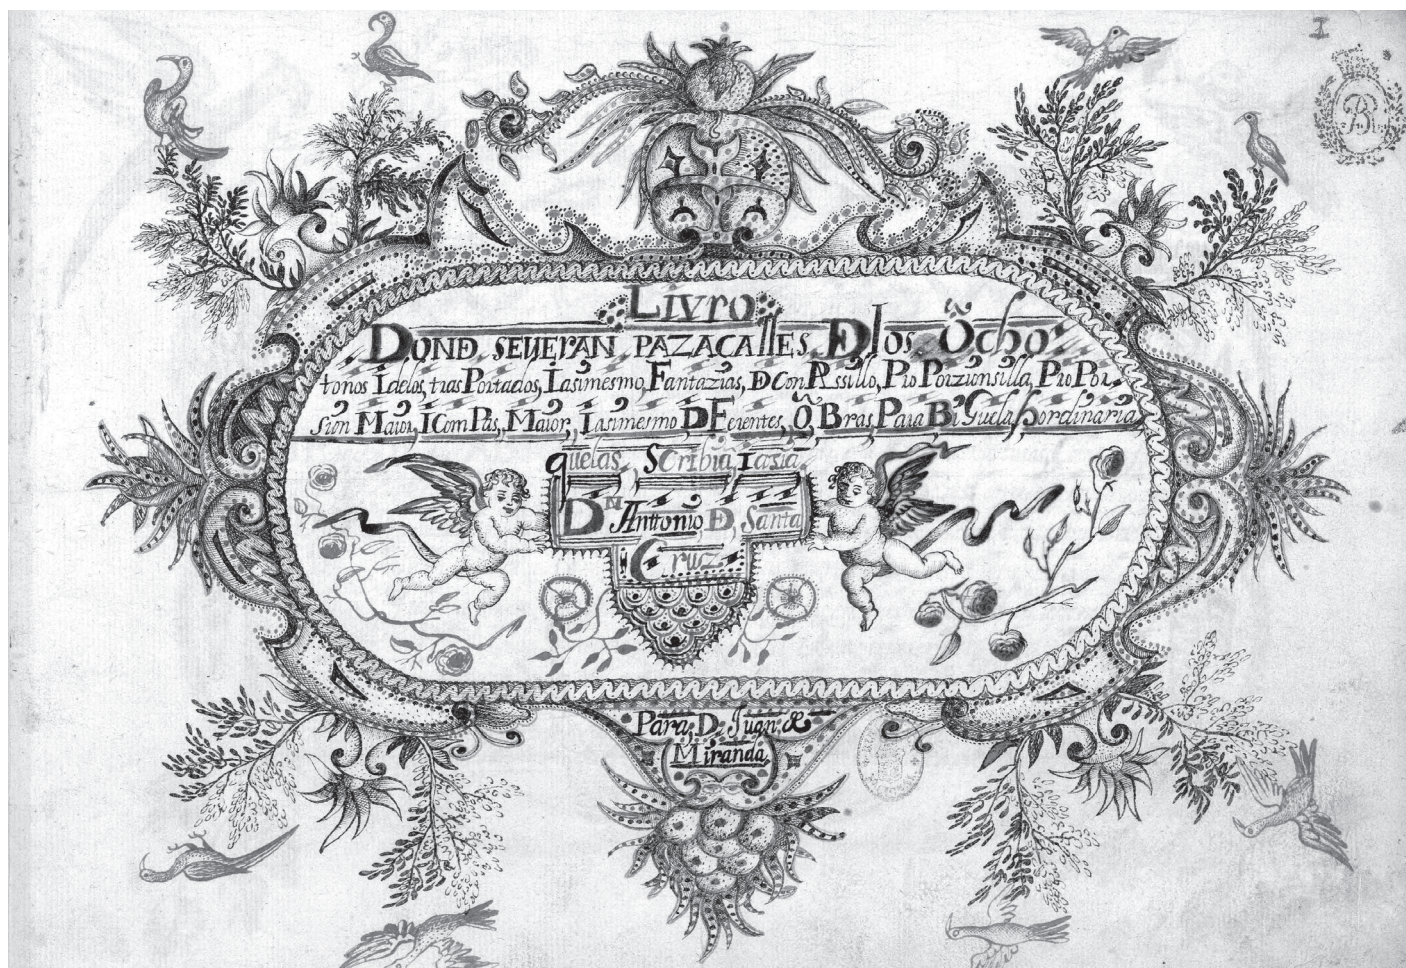 I
Livro
DOND SEVERAN PAZACAllES Dlos õcho
tonos I delos tras Portados, Iasimesmo, Fantazias, D Con
sion Maior, I ComPas, Maior, Iasimesmo DFerentes, õBras, Para Bi Guela hordinaria
quelas, Scribia, Iasia
Dn Anttonio D, Santa
Cruz
Para, D. Juan de
Miranda